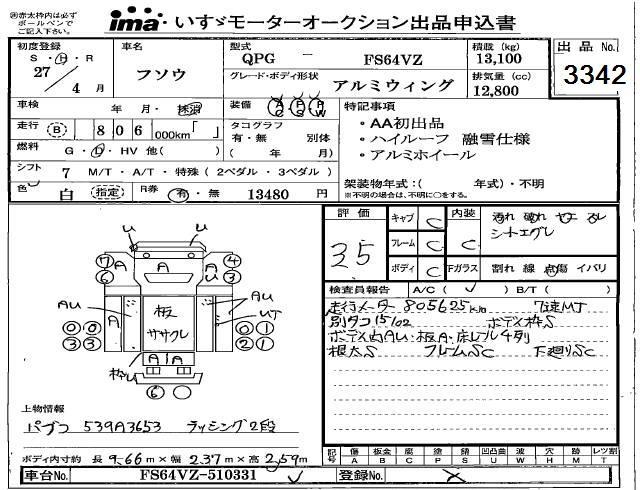 ※赤太枠内は必ず
ボールペンで
ご記入下さい。
ima いすゞモーターオークション出品申込書
初度登録 S・H・R 27 / 4 月
車名 フソウ
型式 QPG － FS64VZ
積載 (kg) 13,100
出品 No. 3342
グレード・ボディ形状 アルミウィング
排気量 (cc) 12,800
車検 年 月・抹消
装備 AC PS PW
特記事項
・AA初出品
・ハイルーフ 融雪仕様
・アルミホイール
走行 B 806 000km「 」
タコグラフ 有・無 別体
( 年 月)
燃料 G・D・HV 他( )
シフト 7 M/T・A/T・特殊 (2ペダル・3ペダル)
架装物年式:( 年式)・不明
※不明の場合は、不明に○をする。
色 白 指定 R券 有・無 13480 円
評価 3.5
キャブ C
フレーム C
ボディ C
内装 C
下ガラス S
汚れ 破れ
シートエグレ
割れ 線 点傷 イバリ
検査員報告 A/C( ) B/T( )
走行メーター 805625km 7速MT
別タコ 15/02 ボデメ枠S
ボデメ内AU・板A・床レール4列
根太S フレームSC 下廻りSC
U U
7 6 A A A U 4 3
AU A 板 ササクレ AU UT
0 0 3 3 0 0 2 1
A A
枠U
6
上物情報
パブコ 539A3653 ラッシング2段
ボディ内寸寸約 長 9.66m × 幅 2.37m × 高 2.59m
記号 傷 A 板金 B 腐 C 塗 P 錆 S 凹凸曲 U 要 W 穴 H 未 M 欠 T レツ割
車台No. FS64VZ-510331
登録No.